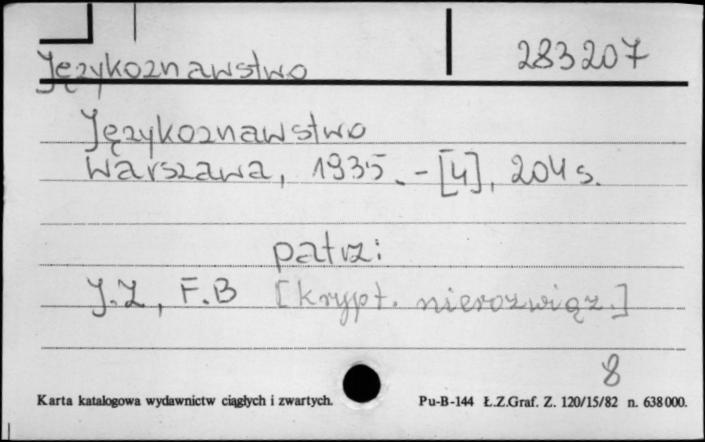 Językoznawstwo 283207
Językoznawstwo
Warszawa, 1935. - [4], 204 s.
patrz:
J.Z, F.B [krypt. nierozwiąz.]
8
Karta katalogowa wydawnictw ciągłych i zwartych. Pu-B-144 Ł.Z.Graf. Z. 120/15/82 n. 638000.